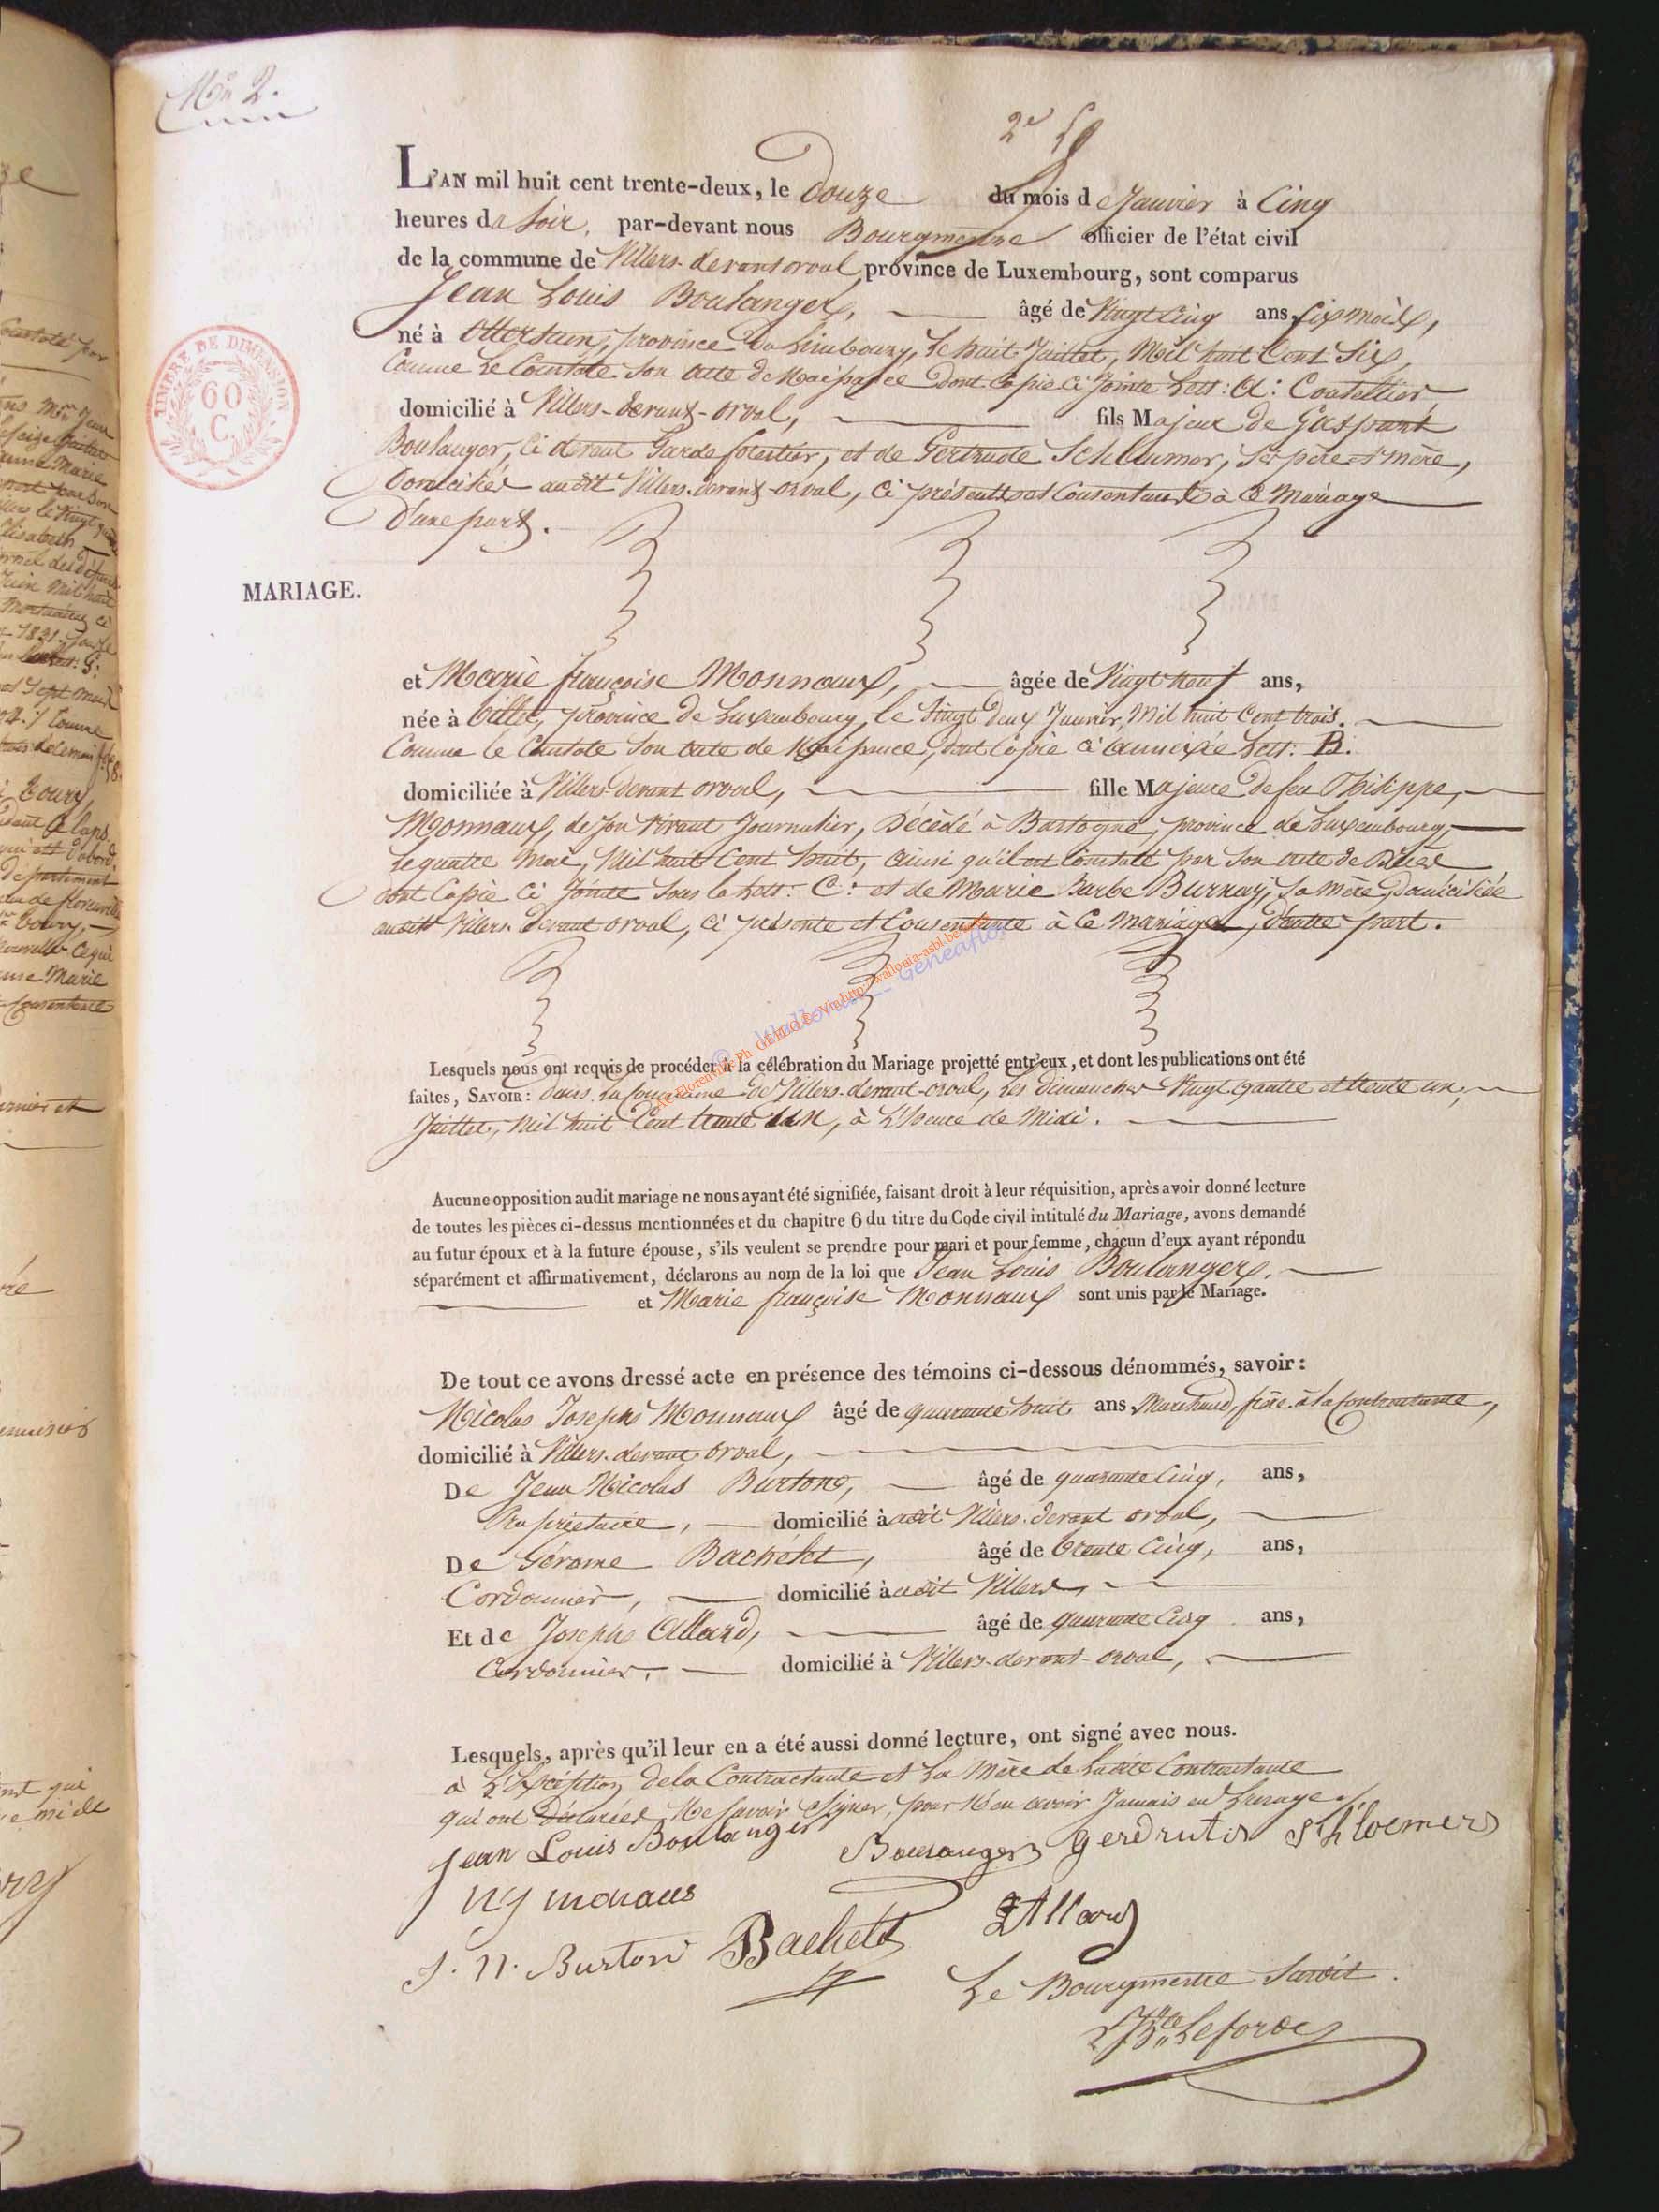 No 2.
2e
L'AN mil huit cent trente-deux, le Douze du mois de Janvier à Cinq
heures du Soir, par-devant nous Bourgmestre officier de l'état civil
de la commune de Villers-devant orval province de Luxembourg, sont comparus
Jean Louis Boulanger, âgé de Vingt Cinq ans, six mois,
né à Ottersum, province du Limbourg, le huit Juillet, Mil huit Cent Six,
Comme le Constate Son acte de Naissance dont Copie Ci Jointe Lett: A:
domicilié à Villers-devant-orval, fils Majeur de Gaspard
Boulanger, Ci devant Garde forestier, et de Gertrude Schlumer, Ses père et mère,
Domiciliés audit Villers-devant-orval, Ci présents et Consentants à Ce Mariage
D'une part.
MARIAGE.
et Marie françoise Monnaux, âgée de Vingt neuf ans,
née à province de Luxembourg, le Vingt deux Janvier, Mil huit Cent trois.
Comme le Constate Son acte de Naissance, dont Copie Ci annexée Lett: B.
domiciliée à Villers-devant orval, fille Majeure de feu Philippe,
Monnaux, de Son Vivant Journalier, Décédé à Bastogne, province de Luxembourg,
le quatre Mai, Mil huit Cent huit, ainsi qu'il est Constaté par Son acte de Décès
dont Copie Ci Jointe Sous la Lett: C: et de Marie Barbe Burnay, Sa mère, Domiciliée
audit Villers-devant orval, Ci présente et Consentante à Ce Mariage, D'autre part.
Lesquels nous ont requis de procéder à la célébration du Mariage projetté entr'eux, et dont les publications ont été
faites, SAVOIR: Dans la Commune de Villers-devant-orval, Les dimanches Vingt quatre et trente un,
Juillet, Mil huit Cent trente un, à L'heure de Midi.
Aucune opposition audit mariage ne nous ayant été signifiée, faisant droit à leur réquisition, après avoir donné lecture
de toutes les pièces ci-dessus mentionnées et du chapitre 6 du titre du Code civil intitulé du Mariage, avons demandé
au futur époux et à la future épouse, s'ils veulent se prendre pour mari et pour femme, chacun d'eux ayant répondu
séparément et affirmativement, déclarons au nom de la loi que Jean Louis Boulanger,
et Marie françoise Monnaux sont unis par le Mariage.
De tout ce avons dressé acte en présence des témoins ci-dessous dénommés, savoir:
Nicolas Joseph Monnaux âgé de quarante huit ans Marchand, frère à la Contractante,
domicilié à Villers-devant orval,
De Jean Nicolas Burton, âgé de quarante Cinq, ans,
Propriétaire, domicilié à audit Villers-devant orval,
De Gérome Bachelet, âgé de trente Cinq, ans,
Cordonnier, domicilié à audit Villers,
Et de Joseph Allard, âgé de quarante Cinq ans,
Cordonnier, domicilié à Villers-devant-orval,
Lesquels, après qu'il leur en a été aussi donné lecture, ont signé avec nous.
à L'exception de la Contractante et La Mère de Ladite Contractante
qui ont Déclarées Ne Savoir Signer, pour N'en avoir Jamais eu L'usage.
Jean Louis Boulanger Boulanger Gerdrutis Schloemers
NJ monaus
J. N. Burton Bachelet J Allard
Le Bourgmestre Susdit.
TIMBRE DE DIMENSION
60
C.